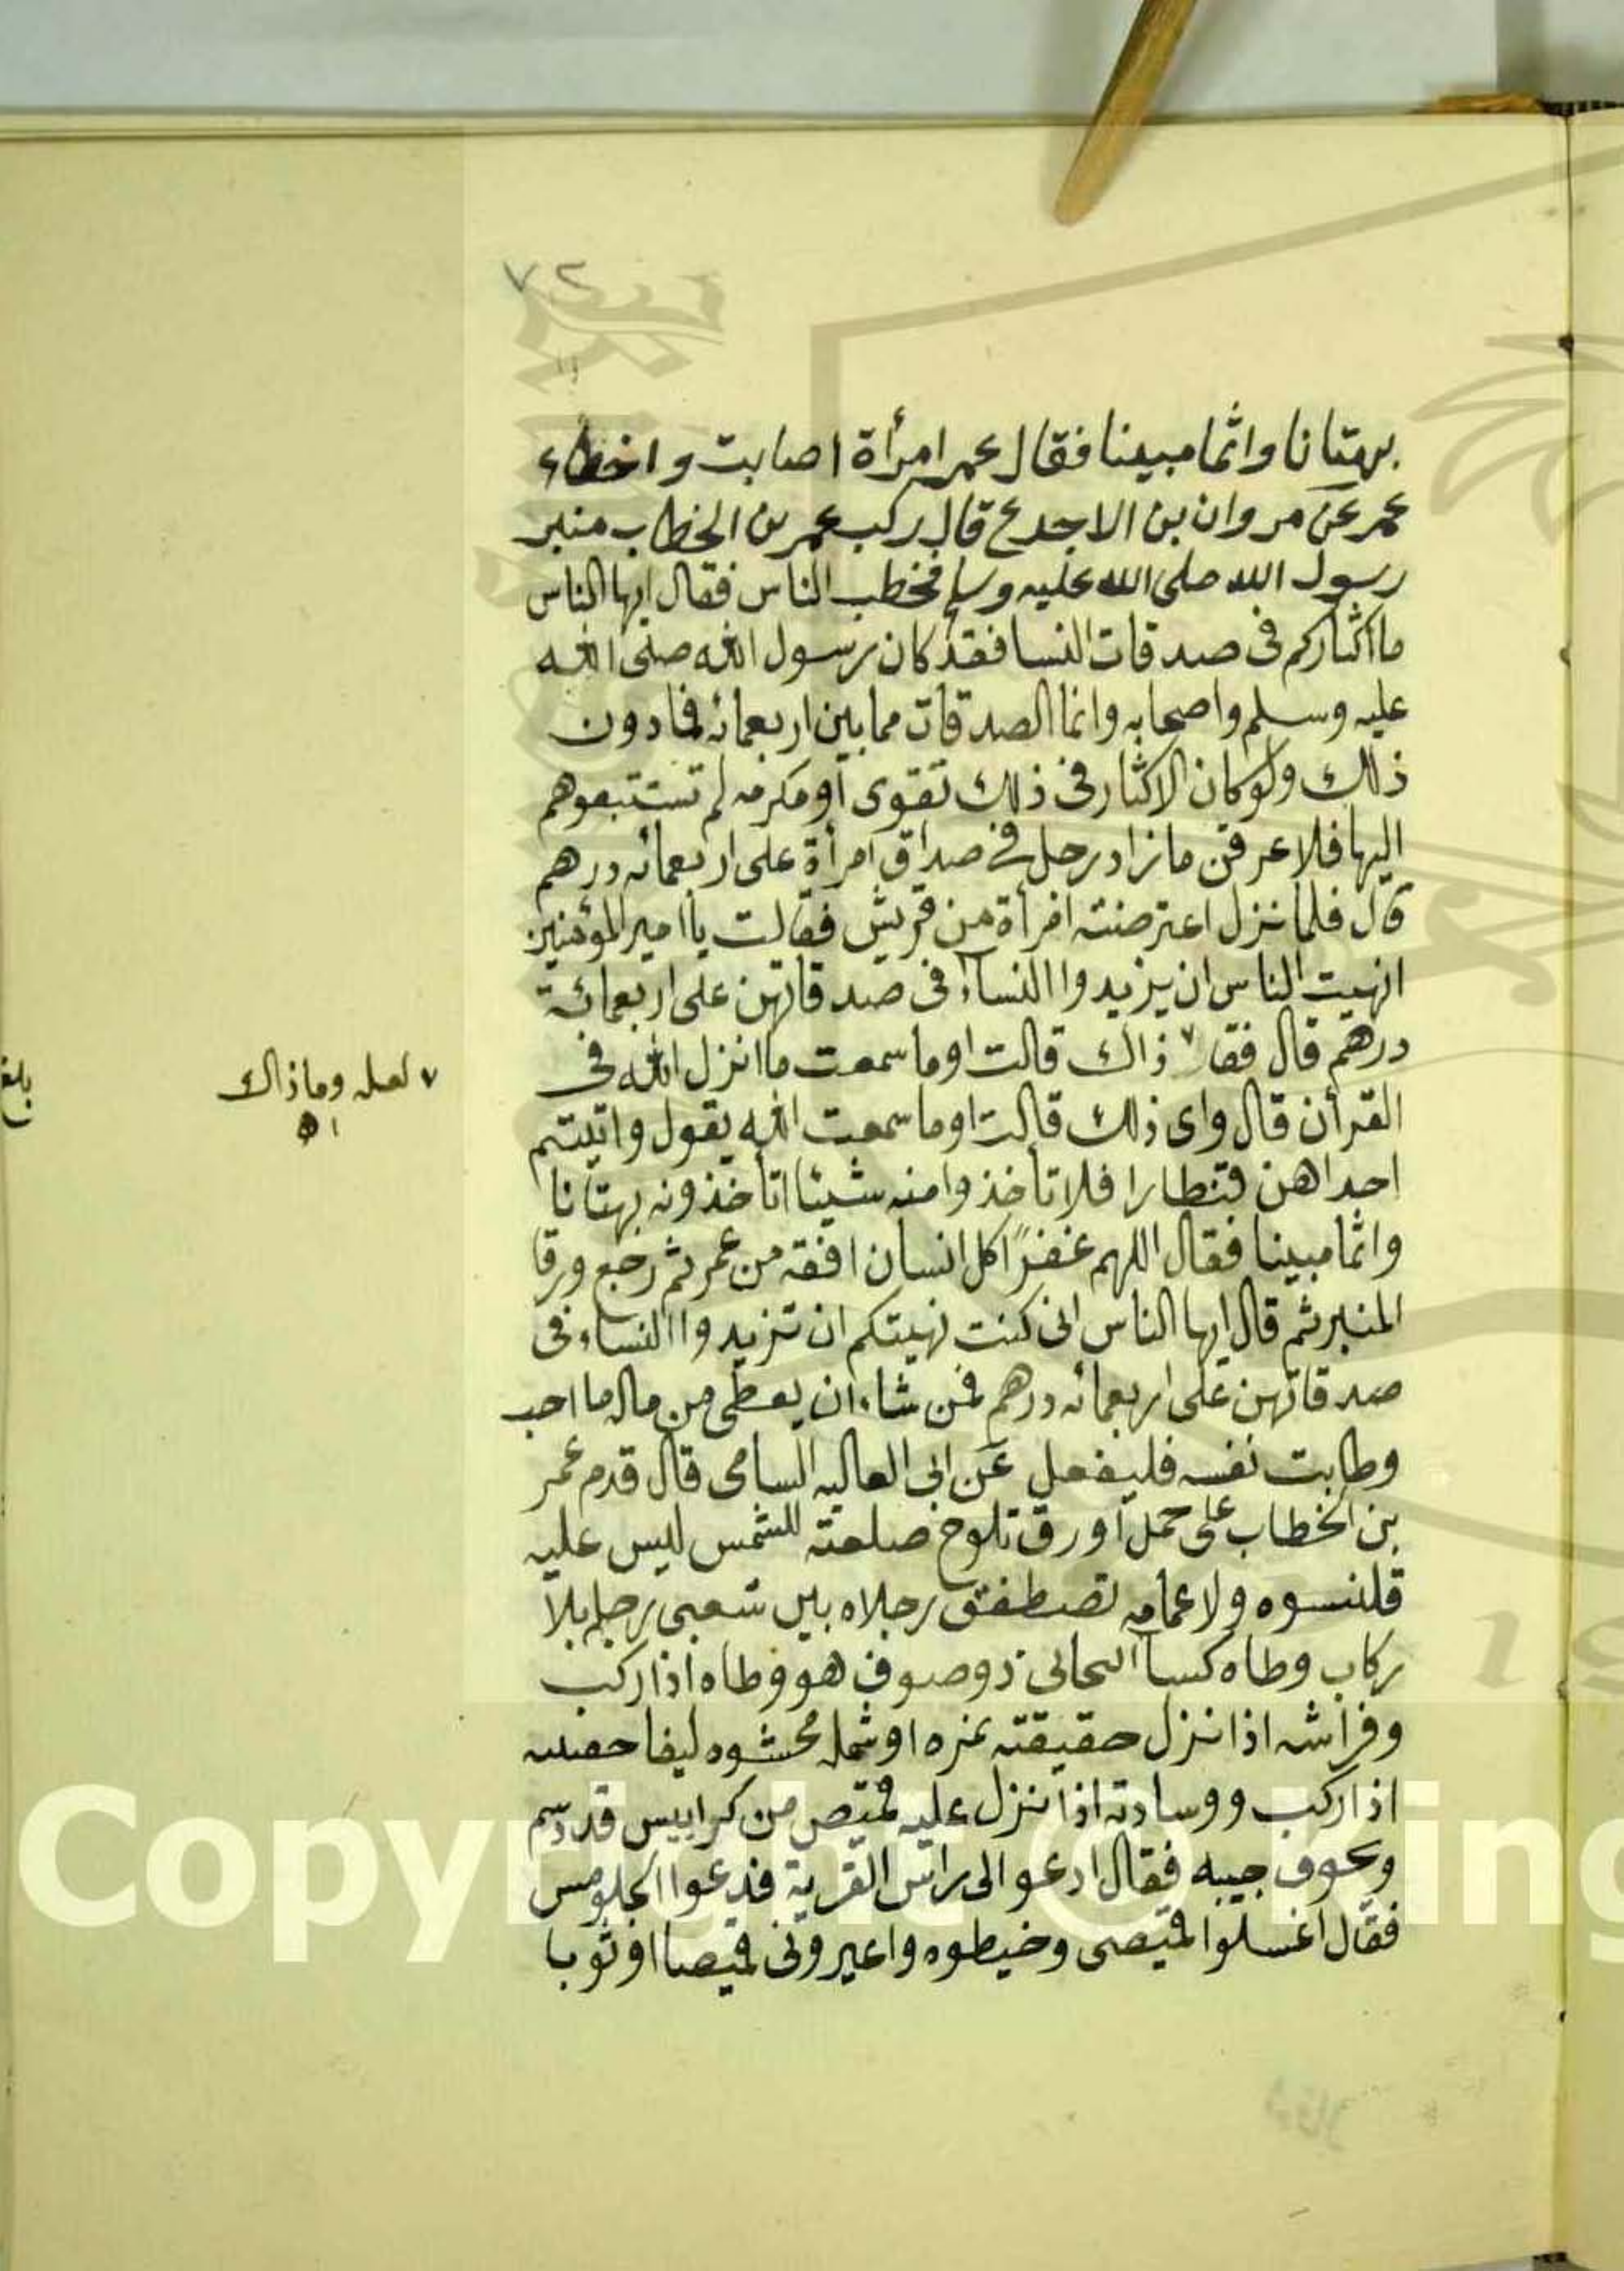 ٧٢
بهتانا واثما مبينا فقال عمر امرأة اصابت واخطاء
عمر عن مروان بن الاجدع قال ركب عمر بن الخطاب منبر
رسول الله صلى الله عليه وسلم فخطب الناس فقال ايها الناس
ما اكثاركم فى صدقات النسا فقد كان رسول الله صلى الله
عليه وسلم واصحابه وانما الصدقات مما بين اربعمائه فما دون
ذلك ولو كان الاكثار فى ذلك تقوى او مكرمه لم تستبقوهم
اليها فلا عرفن ما زاد رجل فى صداق امرأة على اربعمائه درهم
قال فلما نزل اعترضته امرأة من قريش فقالت يا امير المؤمنين
انهيت الناس ان يزيدوا النساء فى صدقاتهن على اربعمائة
درهم قال فقا ٧ ذاك قالت اوما سمعت ما انزل الله فى
القرأن قال واى ذلك قالت اوما سمعت الله يقول واتيتم
احداهن قنطارا فلا تأخذوا منه شيئا اتأخذونه بهتانا
واثما مبينا فقال اللهم غفرًا كل انسان افقه من عمر ثم رجع ورقا
المنبر ثم قال ايها الناس انى كنت نهيتكم ان تزيدوا النساء فى
صدقاتهن على اربعمائه درهم فمن شاء ان يعطى من ماله ما احب
وطابت نفسه فليفعل عن ابى العاليه السامى قال قدم عمر
بن الخطاب على حمل اورق تلوح صلعته للشمس ليس عليه
قلنسوه ولا عمامه تصطفق رجلاه بين شعبى رحله بلا
ركاب وطاه كسا ذو صوف هو وطاه اذا ركب
وفراشه اذا نزل حقيقته نمره او شمله محشوه ليفا
اذا ركب ووسادته اذا نزل عليه قميص من كرابيس قد دسم
جيبه فقال ادعوا لى راس القرية فدعوا الجلومس
فقال اغسلوا قميصى وخيطوه واعيرونى قميصا او ثوبا
٧ لعله وما ذاك
Copyright © King